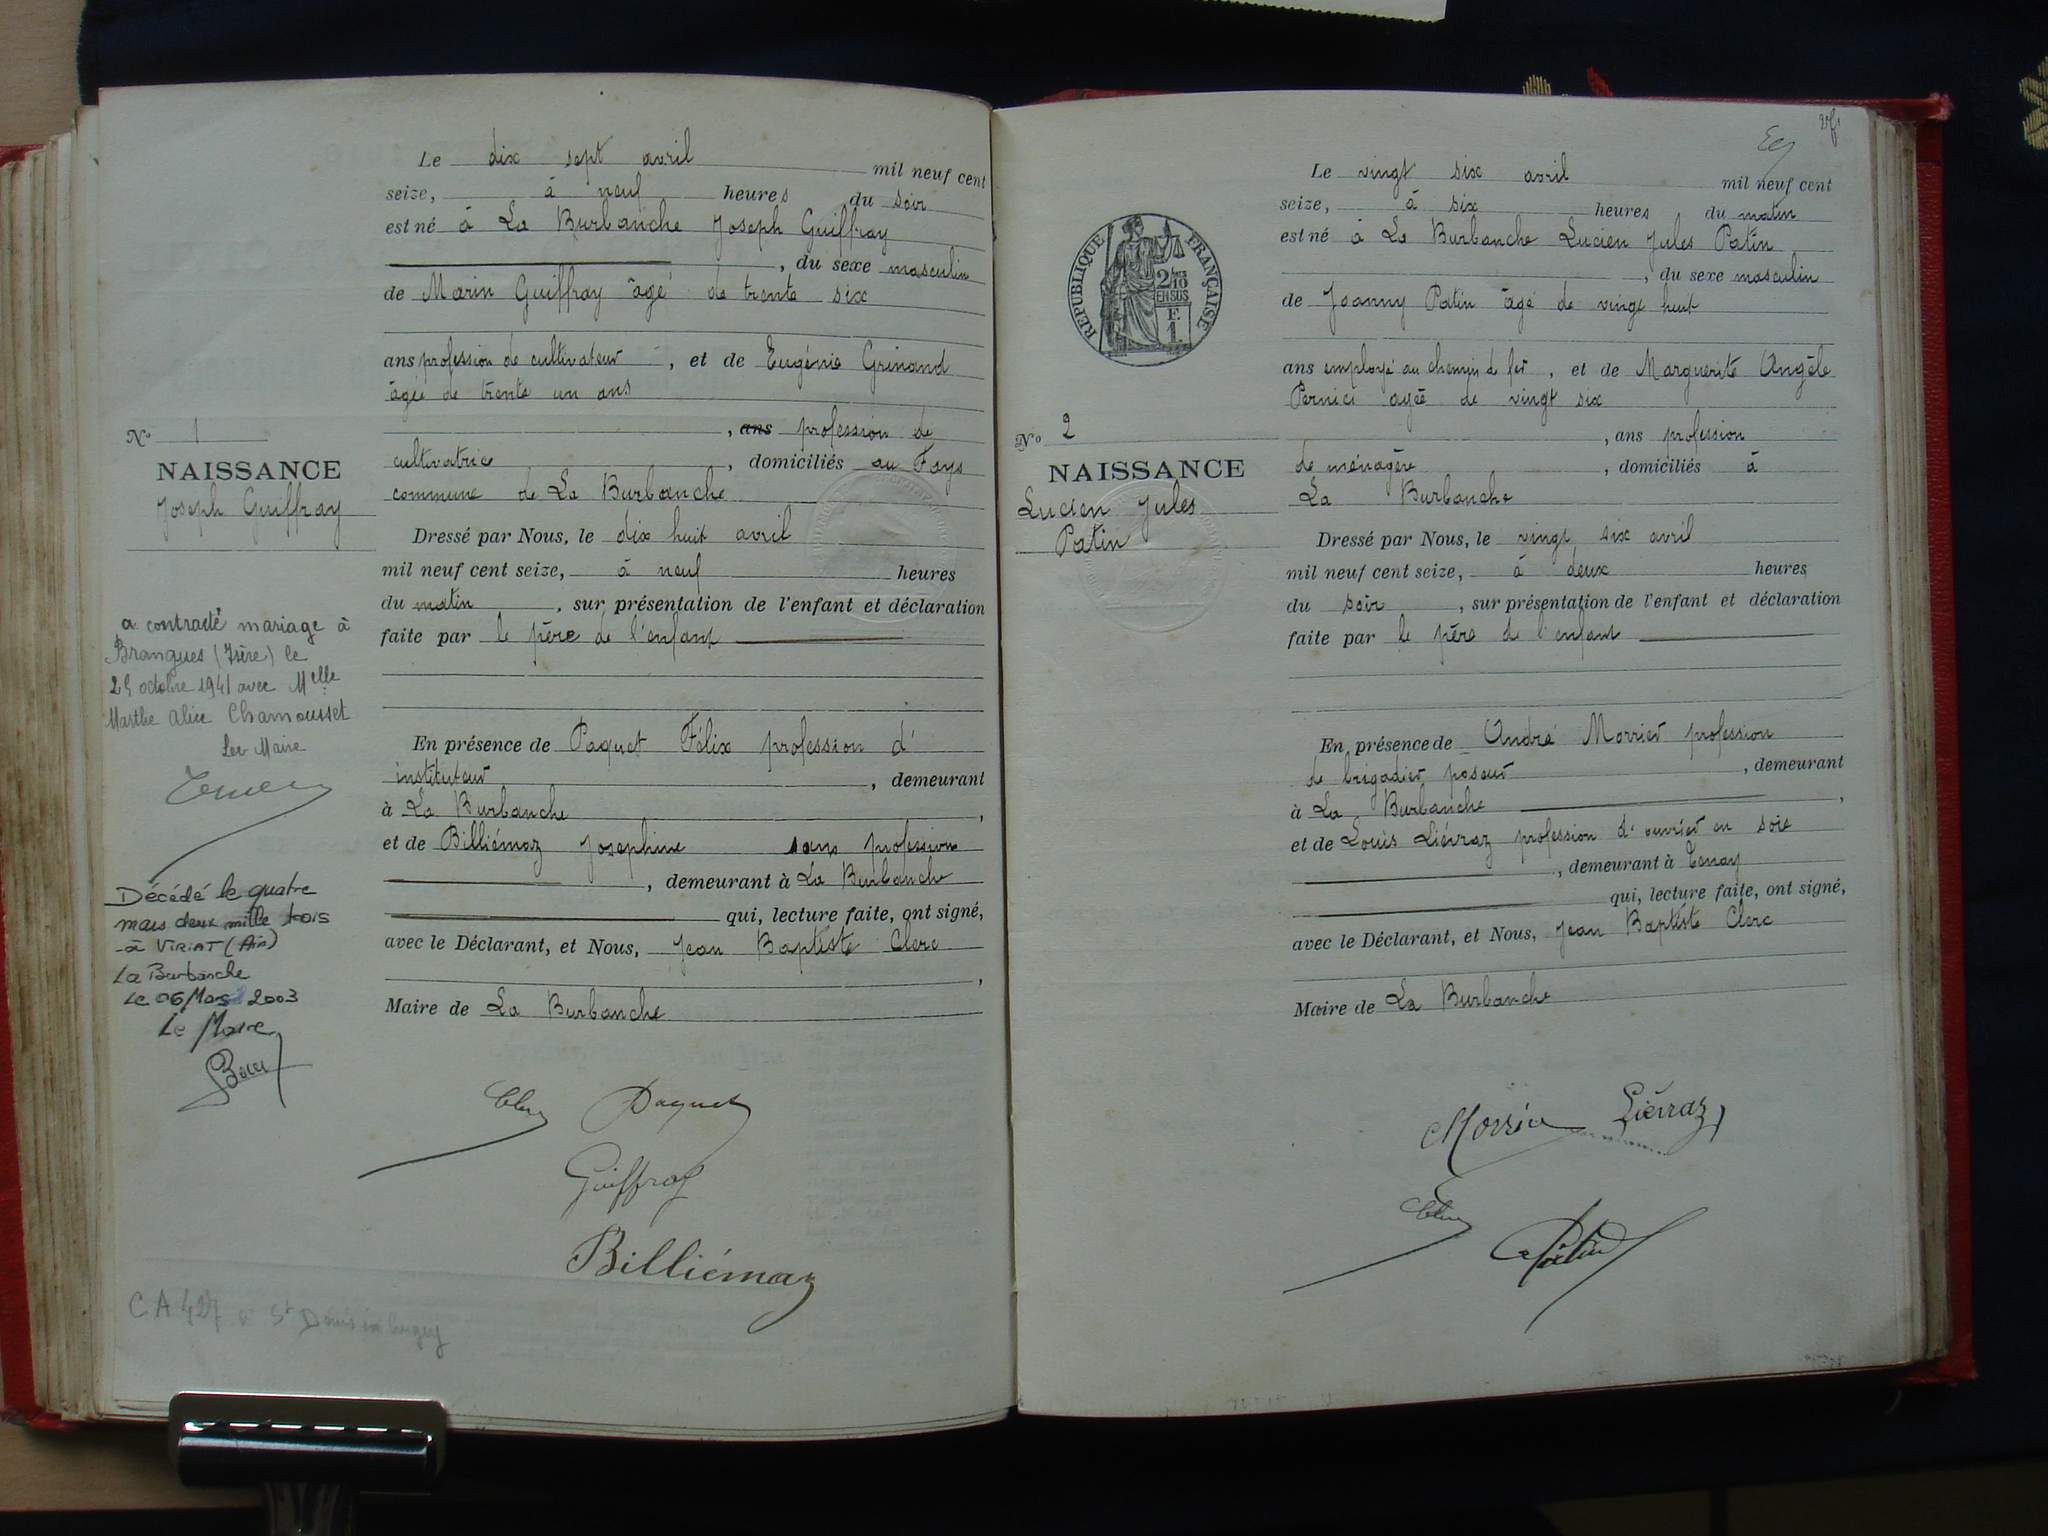 Le dix sept avril mil neuf cent
seize, à neuf heures du soir
est né à La Burbanche Joseph Guiffray
, du sexe masculin
de Marin Guiffray âgé de trente six
ans profession de cultivateur, et de Eugénie Grinand
âgée de trente un ans
, ans profession de
cultivatrice, domiciliés au Fays
commune de La Burbanche
Dressé par Nous, le dix huit avril
mil neuf cent seize, à neuf heures
du matin, sur présentation de l'enfant et déclaration
faite par le père de l'enfant
En présence de Paquet Félix profession d'
instituteur, demeurant
à La Burbanche,
et de Billiémaz Josephine sans profession
, demeurant à La Burbanche
qui, lecture faite, ont signé,
avec le Déclarant, et Nous, Jean Baptiste Clerc
,
Maire de La Burbanche
Clerc Paquet
Guiffray
Billiémaz
No 1
NAISSANCE
Joseph Guiffray
a contracté mariage à
Brangues (Isère) le
octobre 1941 avec Melle
Marthe Alice Chamousset
Le Maire
Décédé le quatre
mars deux mille trois
à VIRIAT (Ain)
La Burbanche
Le 06 Mars 2003
Le Maire
CA 427 St Denis en Bugey
Le vingt six avril mil neuf cent
seize, à six heures du matin
est né à La Burbanche Lucien Jules Patin
, du sexe masculin
de Joanny Patin âgé de vingt huit
ans employé au chemin de fer, et de Marguerite Angèle
Pernici âgée de vingt six
, ans profession
de ménagère, domiciliés à
La Burbanche
Dressé par Nous, le vingt six avril
mil neuf cent seize, à deux heures
du soir, sur présentation de l'enfant et déclaration
faite par le père de l'enfant
En présence de André Morrier profession
de brigadier poseur, demeurant
à La Burbanche,
et de Louis Liévraz profession d'ouvrier en soie
, demeurant à Tenay
qui, lecture faite, ont signé,
avec le Déclarant, et Nous, Jean Baptiste Clerc
Maire de La Burbanche
Morrier Liévraz
Clerc
Patin
RÉPUBLIQUE FRANÇAISE
2/10
EN SUS
F.
1.
No 2
NAISSANCE
Lucien Jules
Patin